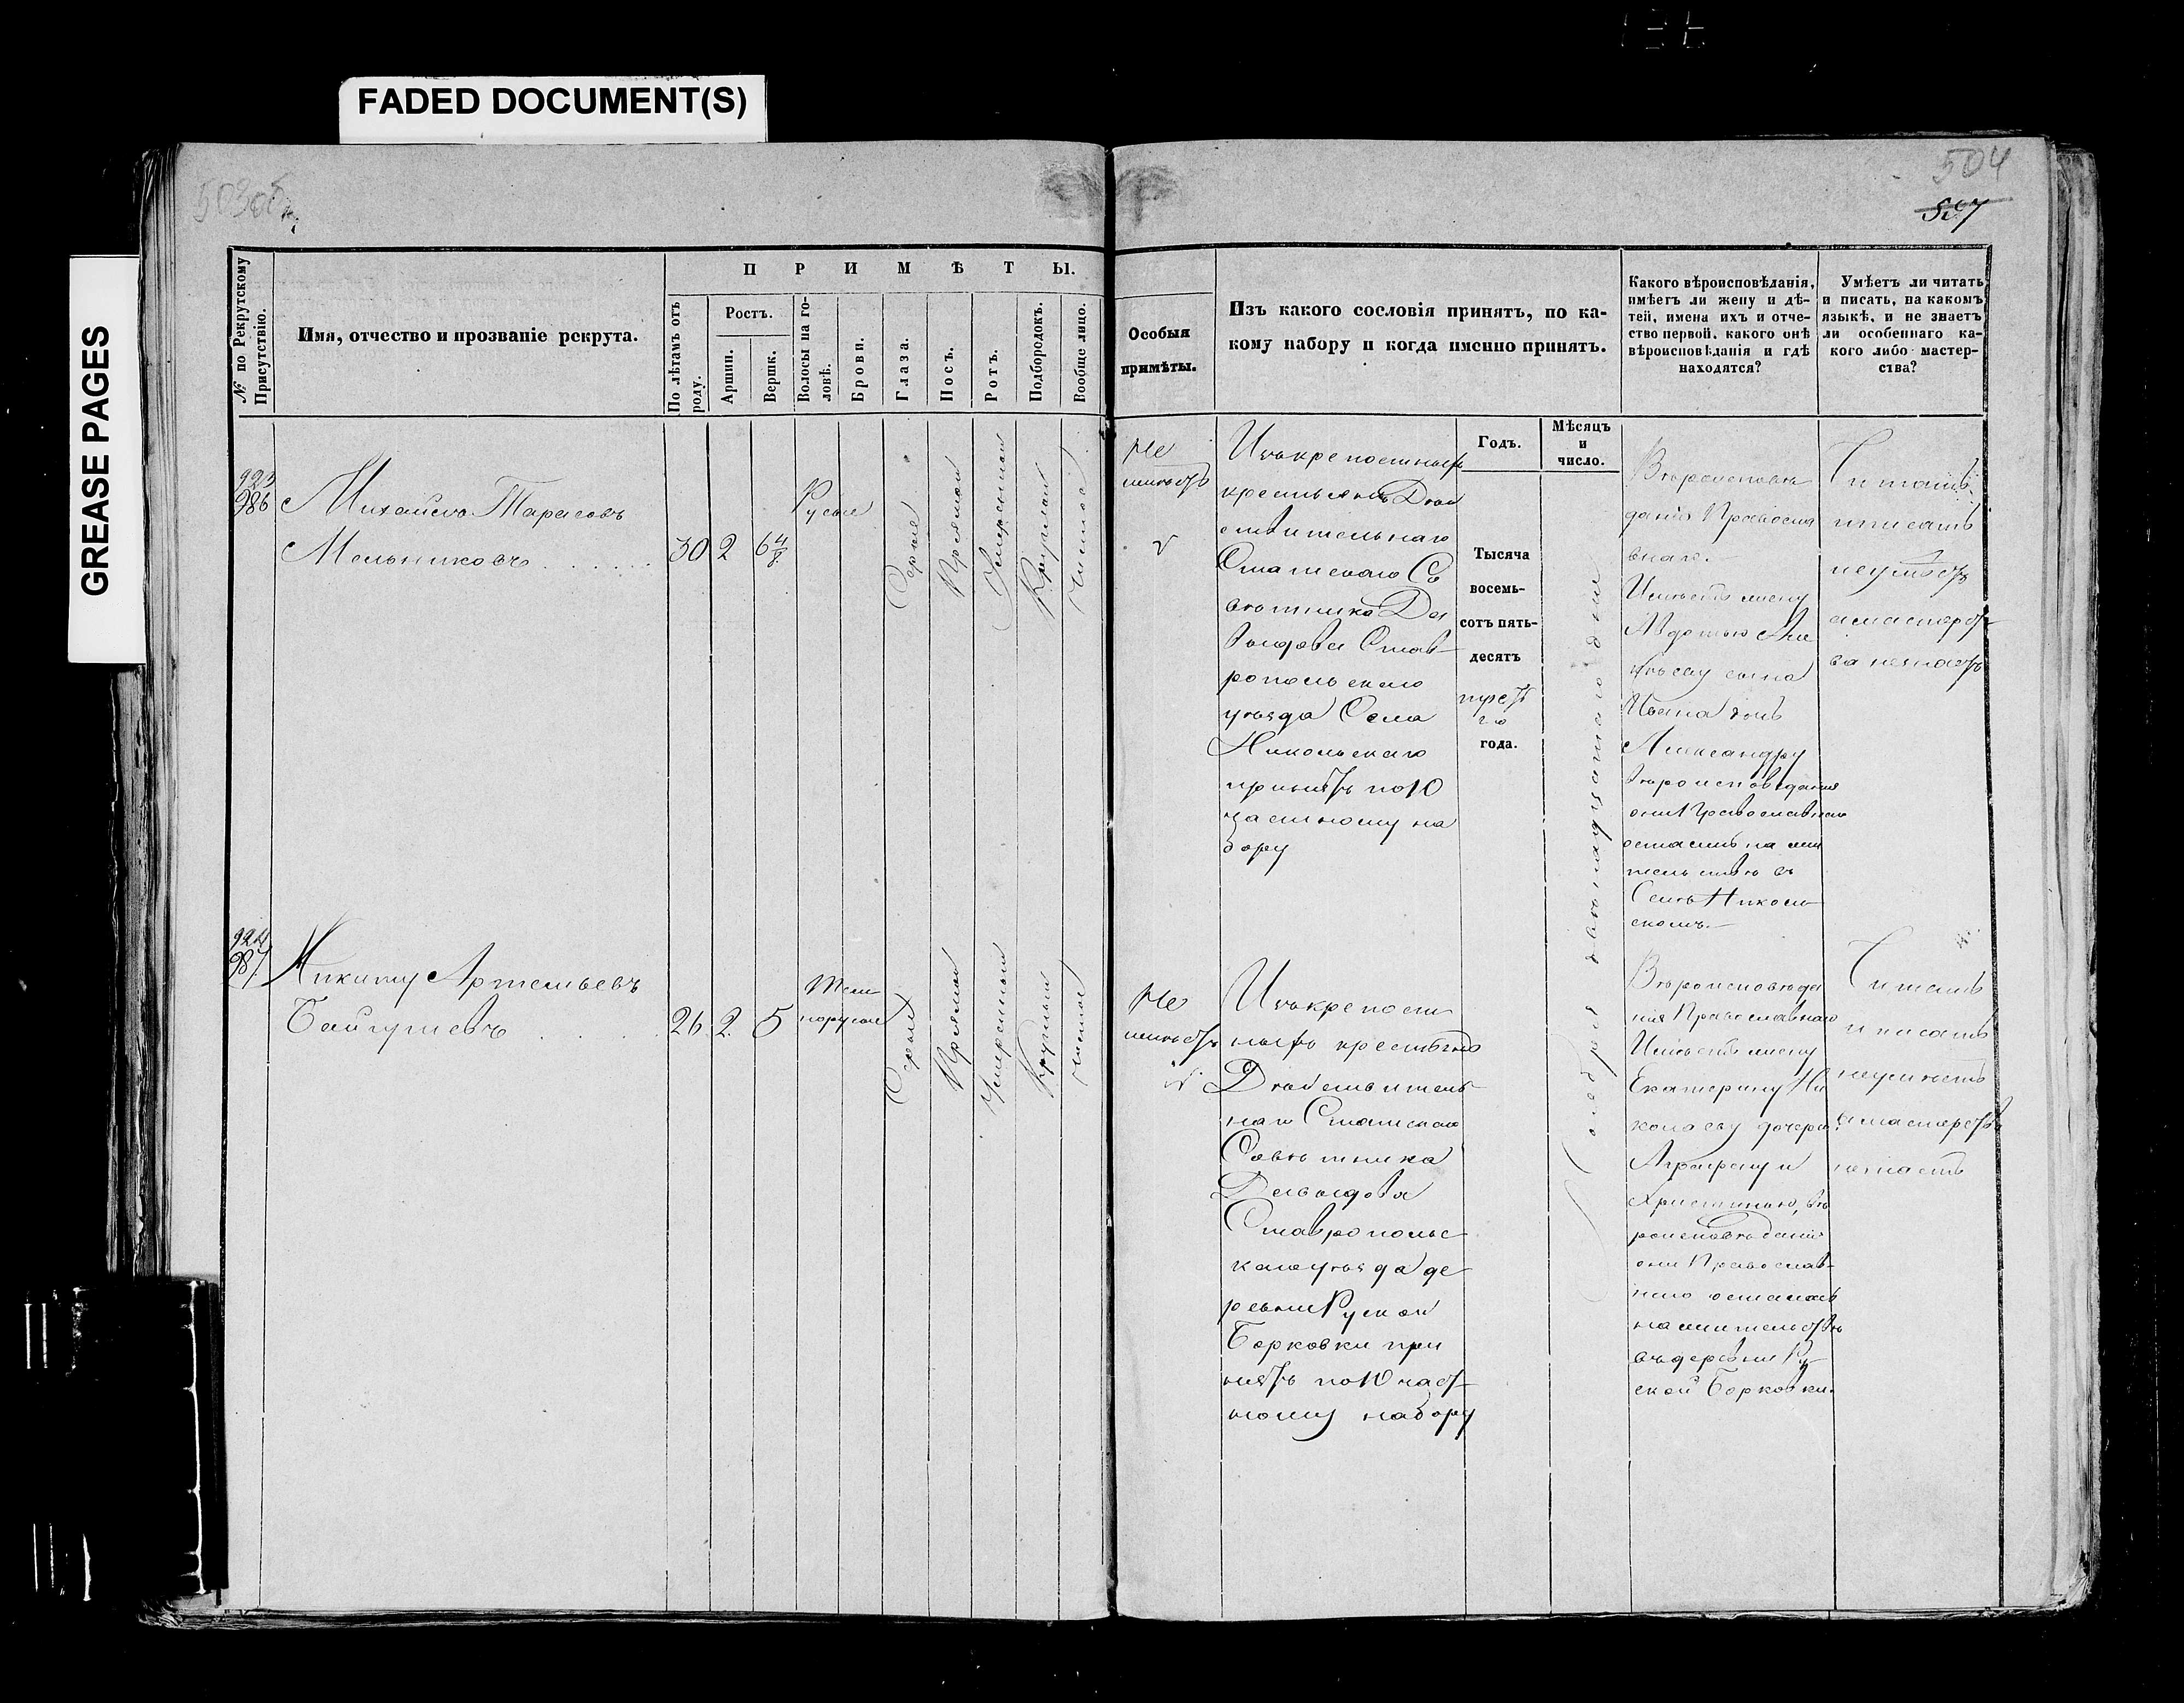 FADED DOCUMENT(S)
GREASE PAGES
503об
504
507
№ по Рекрутскому Присутствію.
Имя, отчество и прозваніе рекрута.
П Р И М Ѣ Т Ы.
По лѣтамъ отъ роду.
Ростъ.
Аршин.
Вершк.
Волосы на головѣ.
Брови.
Глаза.
Носъ.
Ротъ.
Подбородокъ.
Вообще лицо.
Особыя
примѣты.
Изъ какого сословія принятъ, по ка-
кому набору и когда именно принятъ.
Какого вѣроисповѣданія,
имѣетъ ли жену и дѣ-
тей, имена ихъ и отче-
ство первой, какого онѣ
вѣроисповѣданія и гдѣ
находятся?
Умѣетъ ли читать
и писать, на какомъ
языкѣ, и не знаетъ
ли особеннаго ка-
кого либо мастер-
ства?
Годъ.
Мѣсяцъ
и
число.
923
986
Михайло Тарасовъ
Мельниковъ
30 2 6 4/8
Русые
Серые
Прямой
Умеренной
Круглой
Чистое
Не
имѣетъ
Изъ крепостныхъ
крестьянъ Дѣй
ствительнаго
Статскаго Со
вѣтника Да
выдова Став
ропольскаго
уѣзда Села
Никольскаго
принятъ по 10
частному на
бору
Тысяча
восемь-
сотъ пять-
десятъ
третьяго
года.
Ноября двенадцатаго дня
Вѣроисповѣ
данія Правосла
внаго.
Имѣетъ жену
Авдотью Але
ксѣеву сына
Ивана дочь
Александру
вѣроисповѣданія
они Православнаго
остались на жи
тельствѣ въ
Селѣ Николь
скомъ.
Читать
и писать
неумѣетъ
а мастерст
ва незнаетъ
924
987
Никиту Артемьевъ
Байгушевъ
26 2 5
Темнорусые
Серые
Прямой
Умеренный
Круглый
Чистое
Не
имѣетъ
Изъ крепост
ныхъ крестьянъ
Дѣйствитель
наго Статскаго
Совѣтника
Давыдова
Ставропольс
каго уѣзда де
ревни Руской
Борковки при
нятъ по 10 част
ному набору
Вѣроисповѣда
нія Православнаго
Имѣетъ жену
Екатерину Ни
колаеву дочерей
Аграфену и
Христинью, вѣ
роисповѣданія
они Православ
наго остались
на жительствѣ
въ деревни Ру
ской Борковки.
Читать
и писать
неумѣетъ
а мастерства
незнаетъ